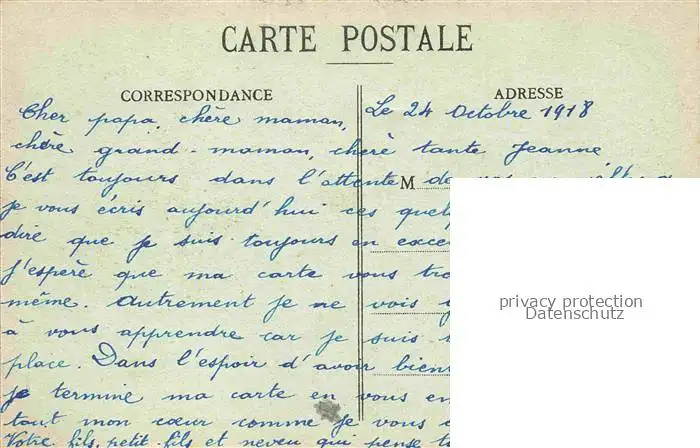 CARTE POSTALE
CORRESPONDANCE
ADRESSE
Le 24 Octobre 1918
Cher papa, chère maman,
chère grand-maman, chère tante Jeanne
C'est toujours dans l'attente de
M
je vous écris aujourd'hui ces
dire que je suis toujours en
J'espère que ma carte vous
même. Autrement je ne vois
à vous apprendre car je suis
place. Dans l'espoir d'avoir bien
je termine ma carte en vous
tout mon cœur comme je vous
Votre fils, petit-fils et neveu qui pense
privacy protection
Datenschutz